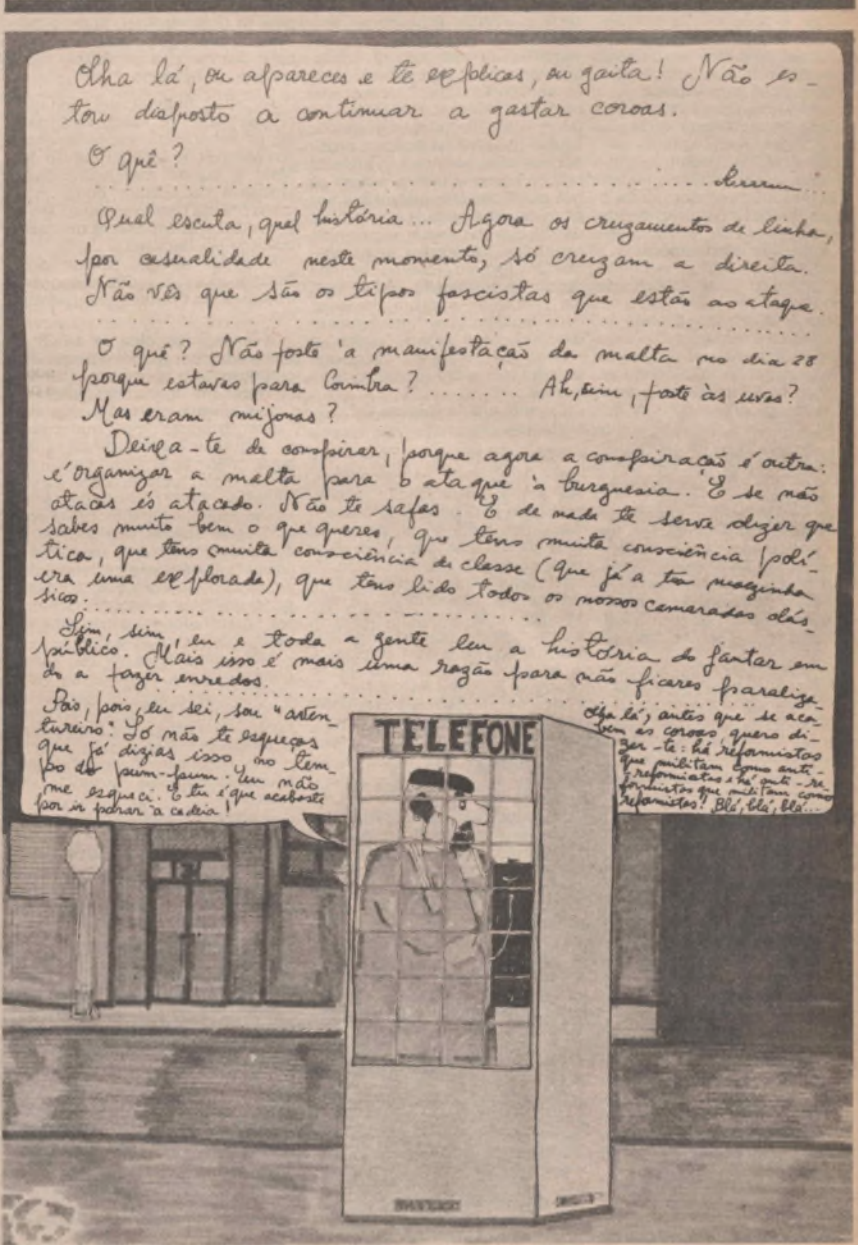 Olha lá, ou apareces e te explicas, ou gaita! Não es-
tou disposto a continuar a gastar coroas.
O quê?
Qual escuta, qual história... Agora os cruzamentos de linha,
por casualidade neste momento, só cruzam a direita.
Não vês que são os tipos fascistas que estão ao ataque.
O quê? Não foste à manifestação da malta no dia 28
porque estavas para Coimbra? ....... Ah, sim, foste às uvas?
Mas eram mijonas?
Deixa-te de conspirar, porque agora a conspiração é outra:
é organizar a malta para o ataque à burguesia. E se não
atacas és atacado. Não te safas. E de nada te serve dizer que
sabes muito bem o que queres, que tens muita consciência polí-
tica, que tens muita consciência de classe (que já a tua mãezinha
era uma explorada), que tens lido todos os nossos camaradas clás-
sicos.
Sim, sim, eu e toda a gente leu a história do jantar em
público. Mais isso é mais uma razão para não ficares paraliza-
do a fazer enredos.
Pois, pois, eu sei, sou "aven-
tureiro". Só não te esqueças
que já dizias isso no tem-
po do pum-pum. Eu não
me esqueci. E tu é que acabaste
por ir parar à cadeia!
Olha lá, antes que se aca-
bem as coroas, quero di-
zer-te: há reformistas
que militam como anti-
reformistas e há anti-re-
formistas que militam como
reformistas! Blá, blá, blá...
TELEFONE